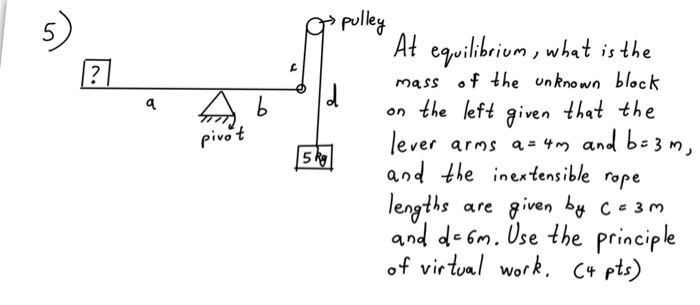 5)
pulley
?
c
a
b
d
pivot
5 kg
At equilibrium, what is the
mass of the unknown block
on the left given that the
lever arms a = 4m and b = 3 m,
and the inextensible rope
lengths are given by c = 3 m
and d = 6m. Use the principle
of virtual work. (4 pts)